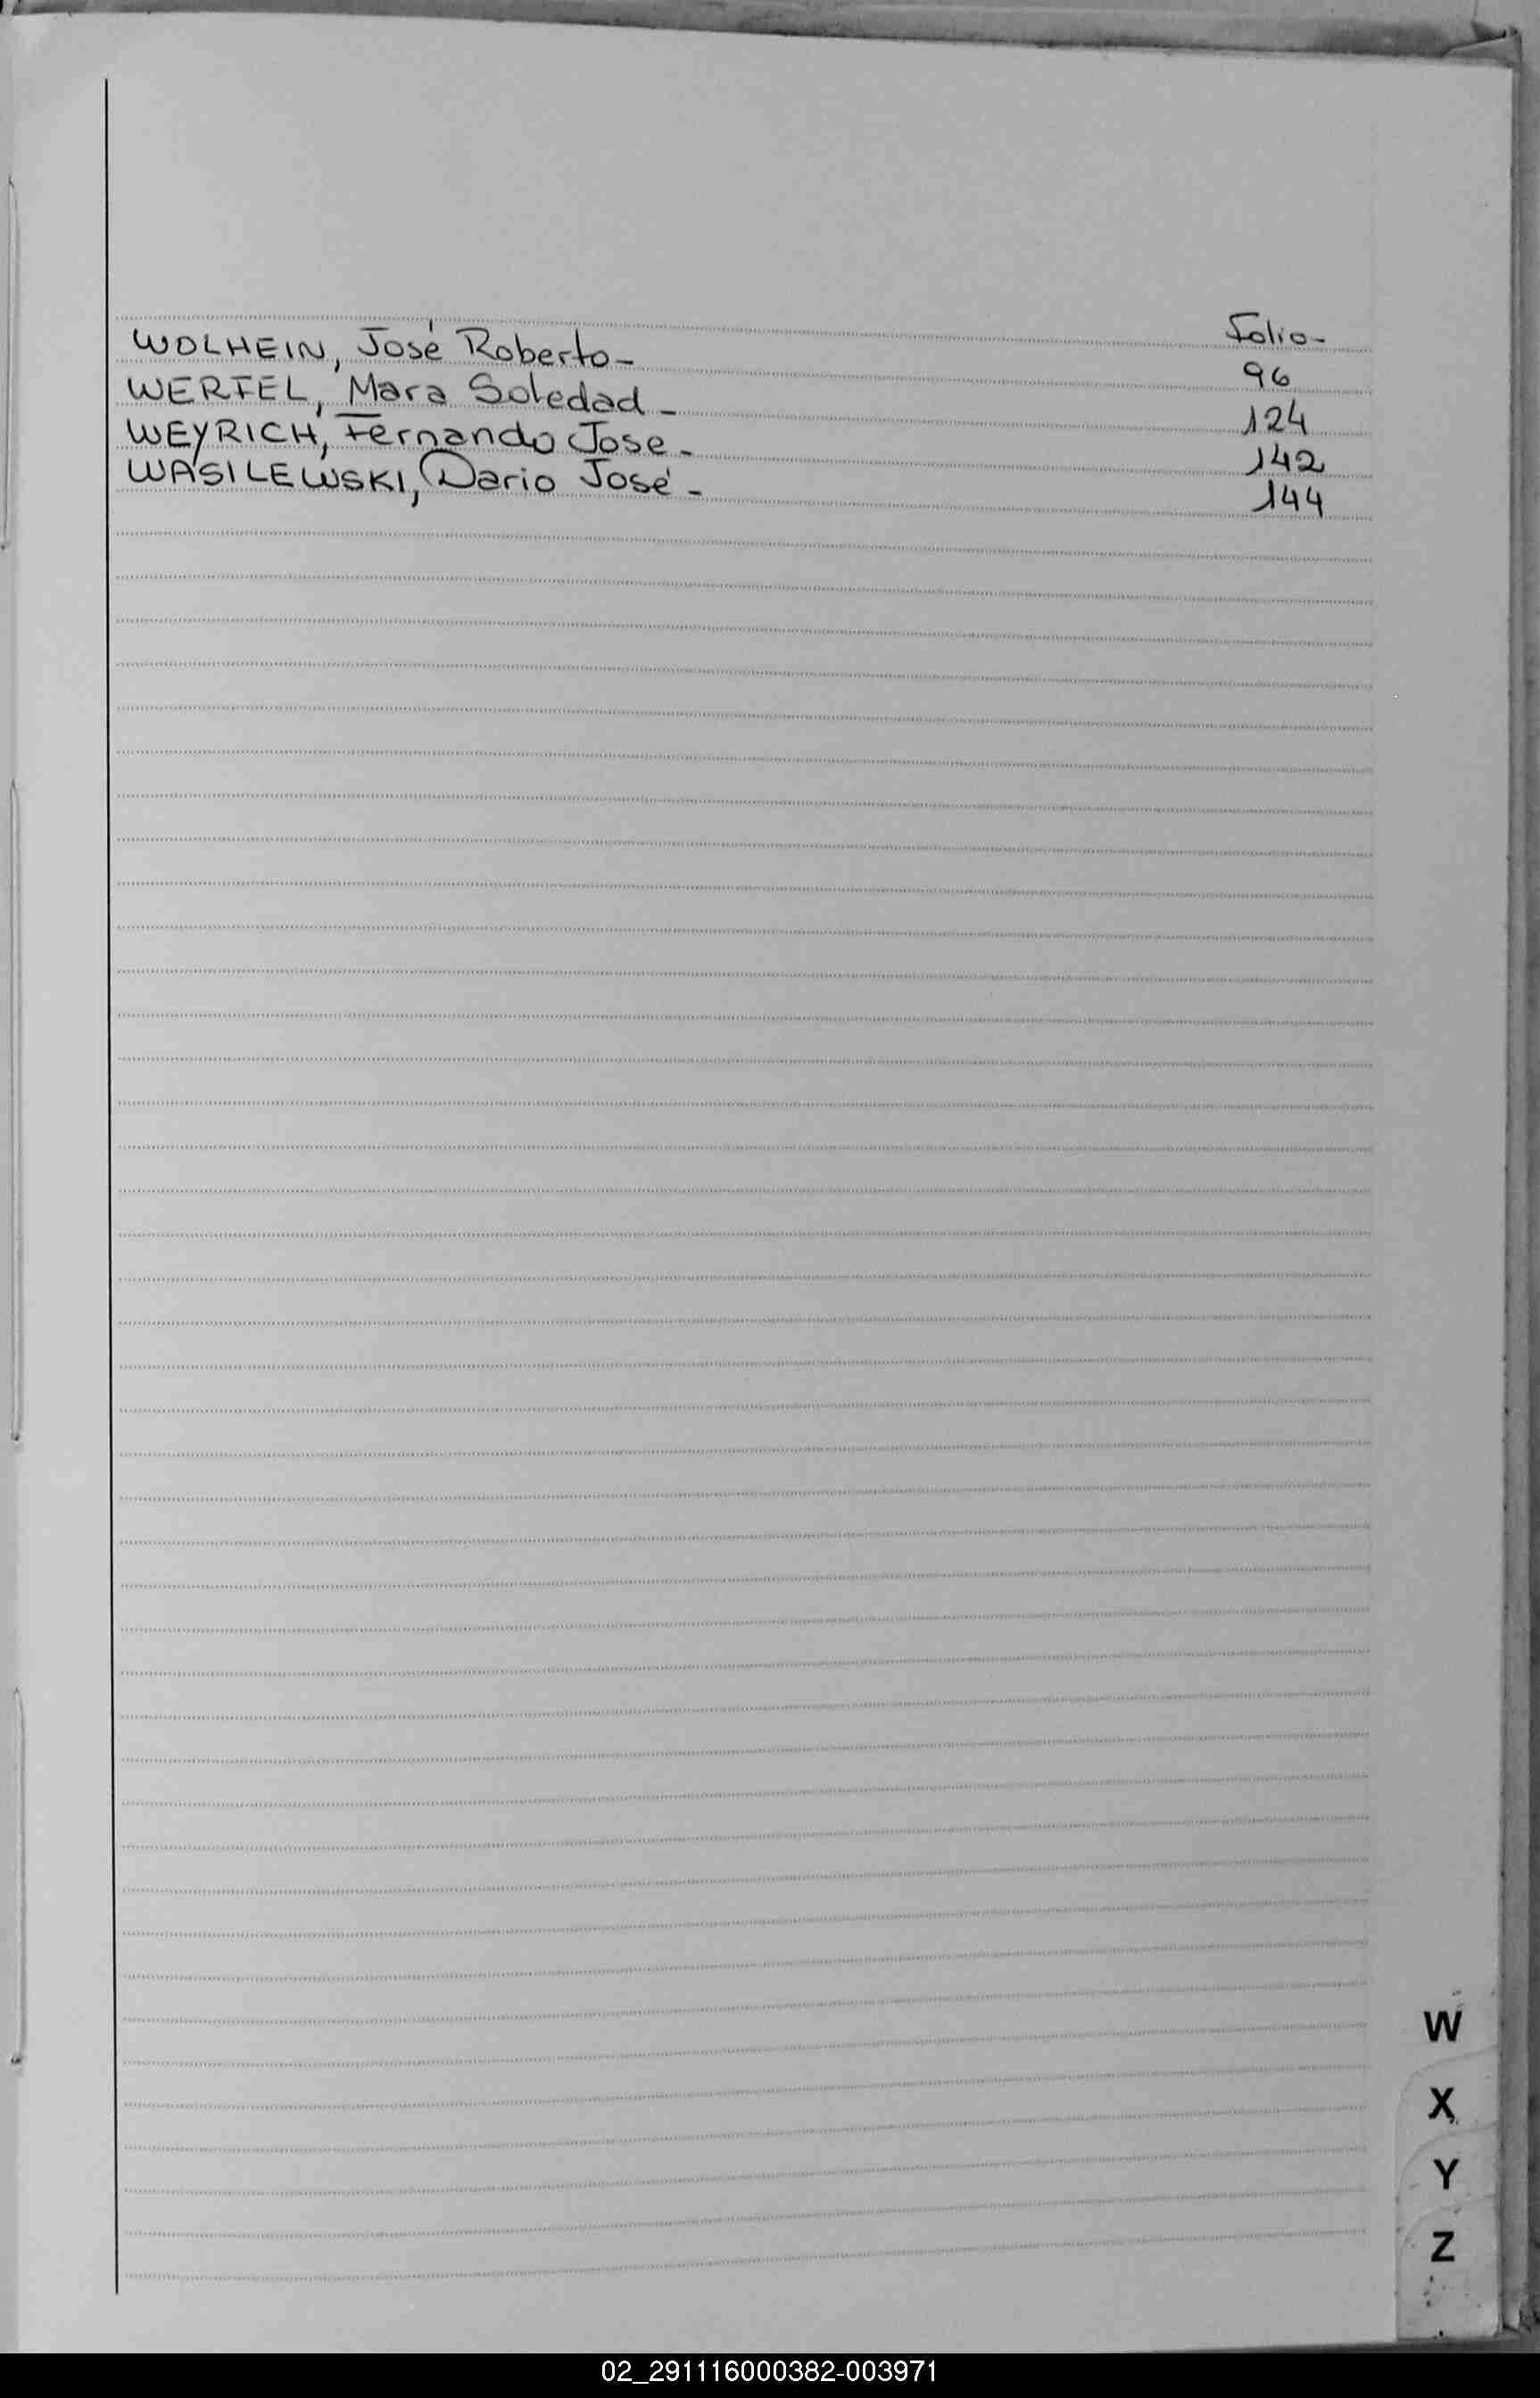 Folio-
WOLHEIN, José Roberto- 96
WERFEL, Mara Soledad- 124
WEYRICH, Fernando Jose- 142
WASILEWSKI, Dario José- 144
W
X
Y
Z
02_291116000382-003971